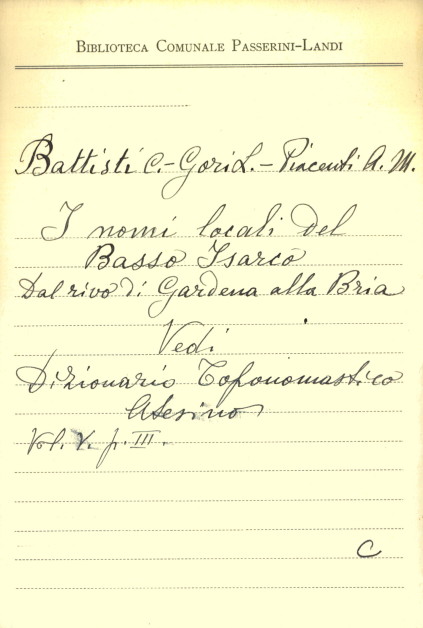 BIBLIOTECA COMUNALE PASSERINI-LANDI
Battisti C. - Gori L. - Piacenti A. M.
I nomi locali del
Basso Isarco
Dal rivo di Gardena alla Bria
Vedi
Dizionario Toponomastico
Atesino
Vol. V. p. III.
C